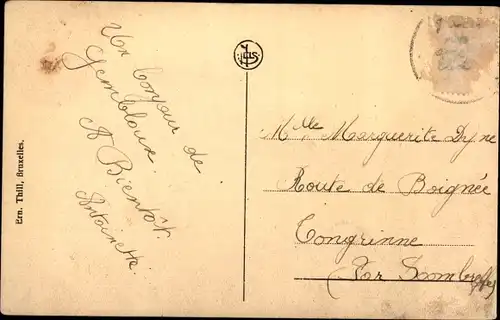 Un bonjour de
Gembloux.
A Bientôt.
Antoinette.
Ern. Thill, Bruxelles.
Mlle Marguerite Dyne
Route de Boignée
Tongrinne
(Par Sombreffe)